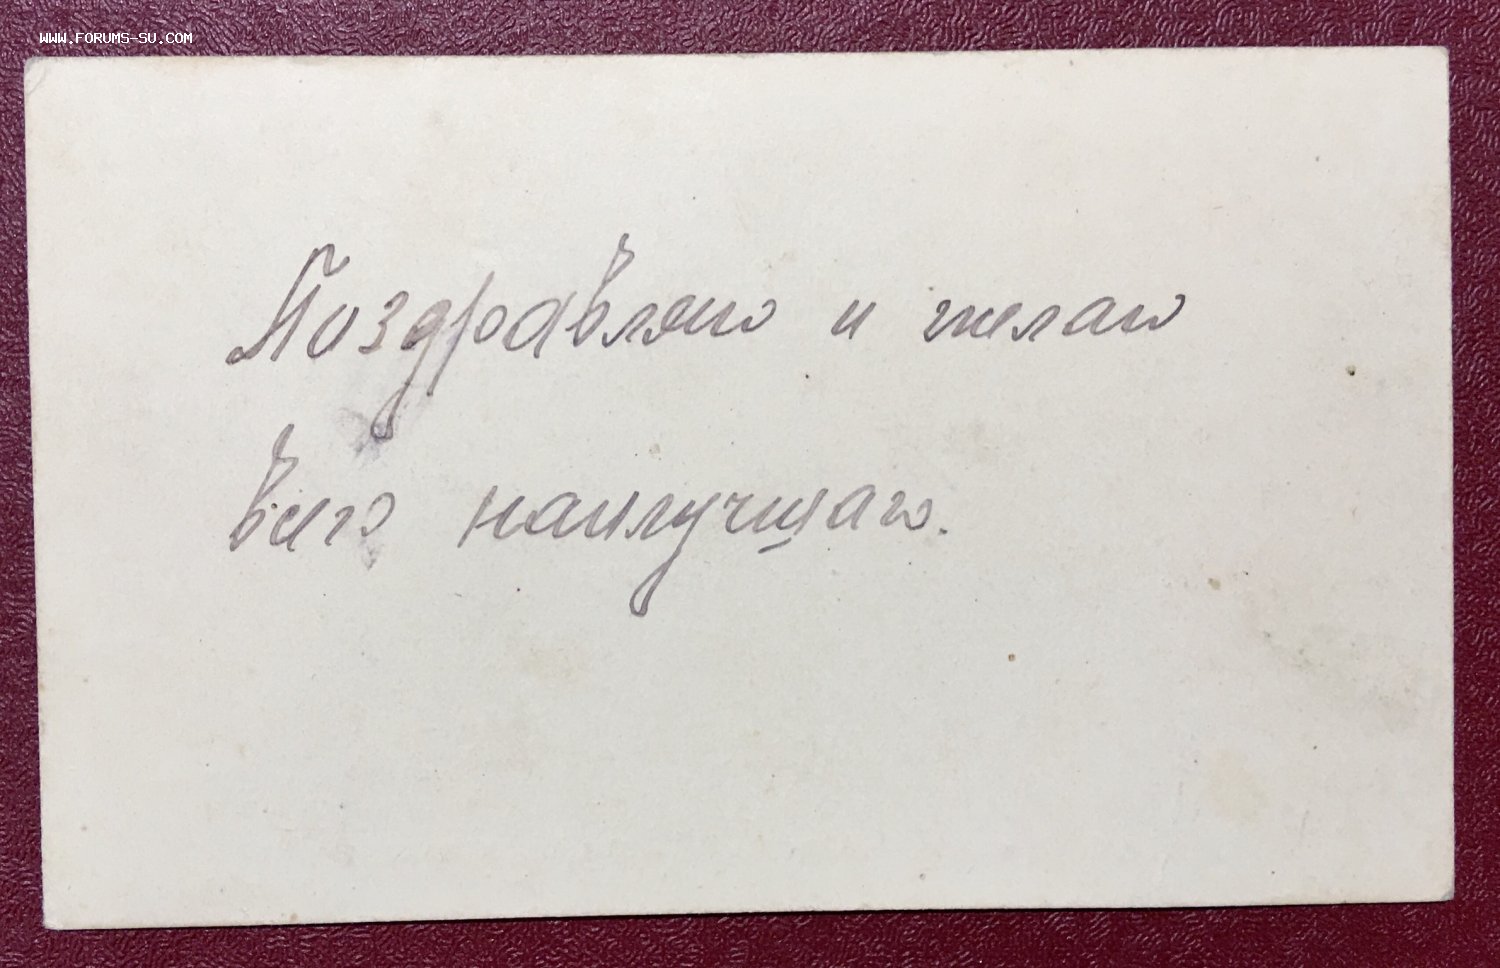 WWW.FORUMS-SU.COM
Поздравляю и желаю
всего наилучшаго.